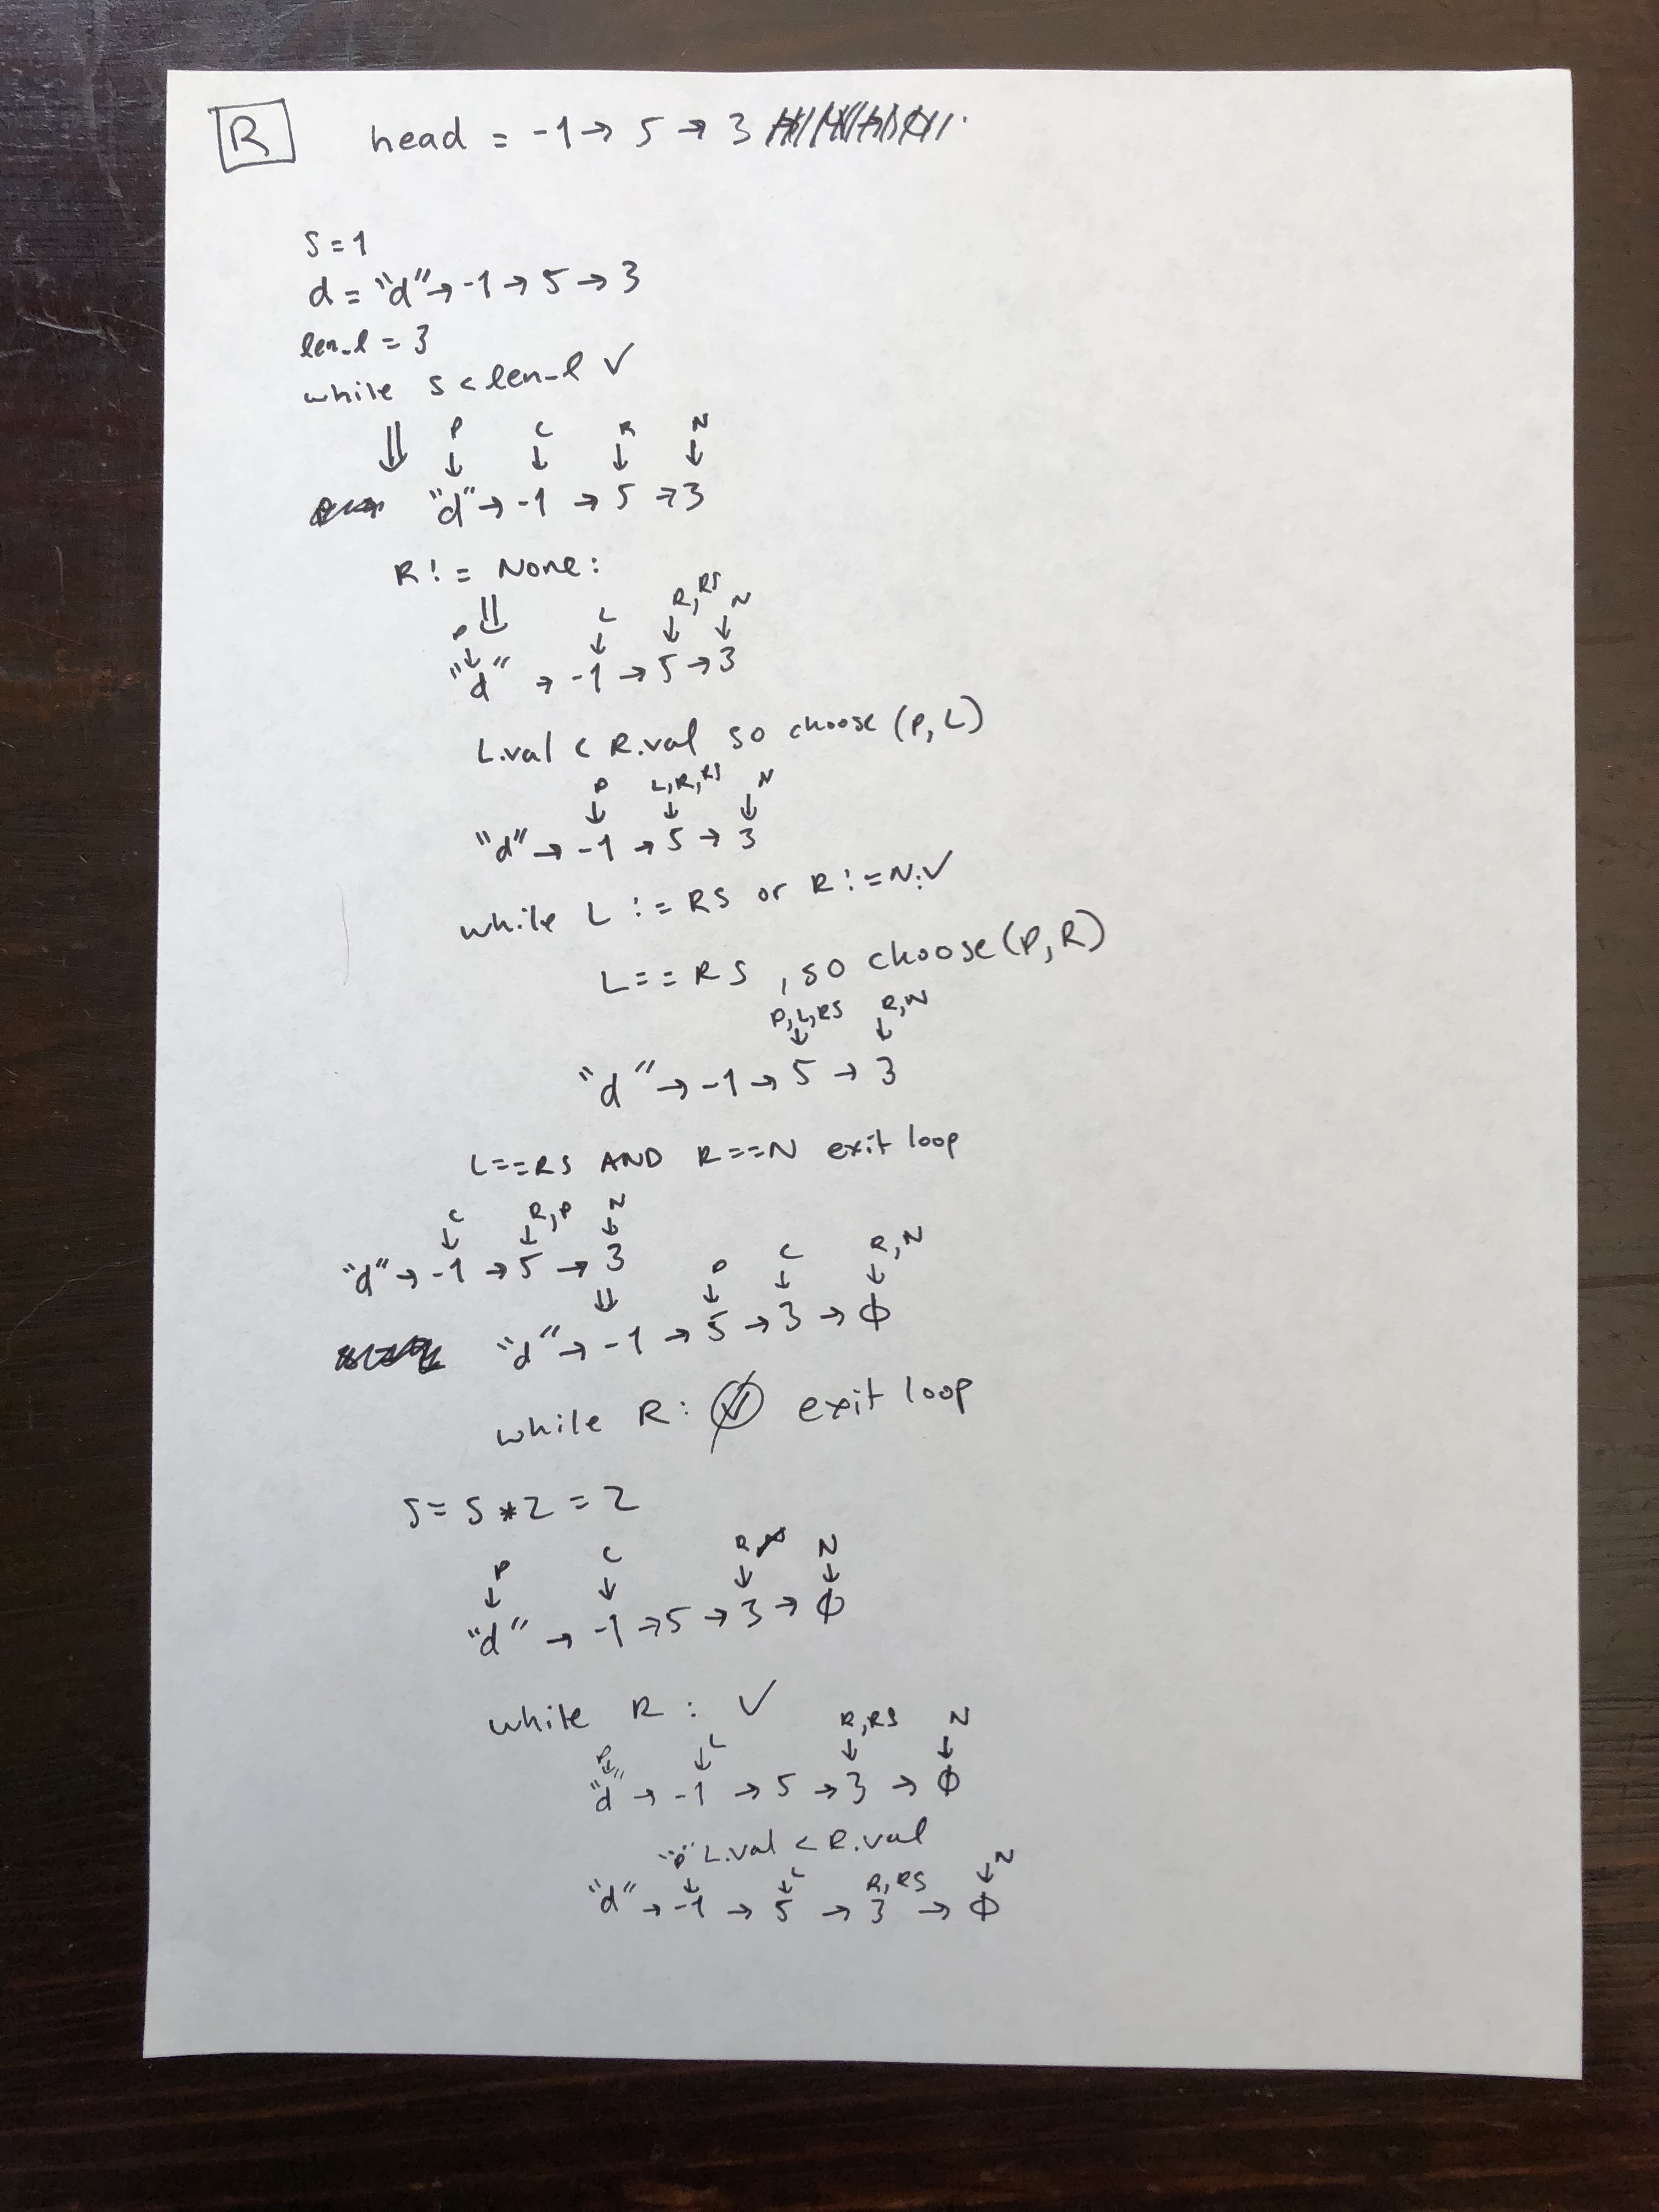 R head = -1 → 5 → 3
S = 1
d = "d" → -1 → 5 → 3
len_l = 3
while s < len_l ✓
⇓ P C R N
↓ ↓ ↓ ↓
"d" → -1 → 5 → 3
R != None:
⇓ P L R,RS N
↓ ↓ ↓ ↓
"d" → -1 → 5 → 3
L.val < R.val so choose (P, L)
P L,R,RS N
↓ ↓ ↓
"d" → -1 → 5 → 3
while L != RS or R != N: ✓
L == RS , so choose (P, R)
P,L,RS R,N
↓ ↓
"d" → -1 → 5 → 3
L==RS AND R==N exit loop
C R,P N
↓ ↓ ↓
"d" → -1 → 5 → 3
⇓ P C R,N
↓ ↓ ↓
"d" → -1 → 5 → 3 → ϕ
while R: exit loop
S = S * 2 = 2
P C R N
↓ ↓ ↓ ↓
"d" → -1 → 5 → 3 → ϕ
while R : ✓
P L R,RS N
↓ ↓ ↓ ↓
"d" → -1 → 5 → 3 → ϕ
L.val < R.val
P L R,RS N
↓ ↓ ↓
"d" → -1 → 5 → 3 → ϕ